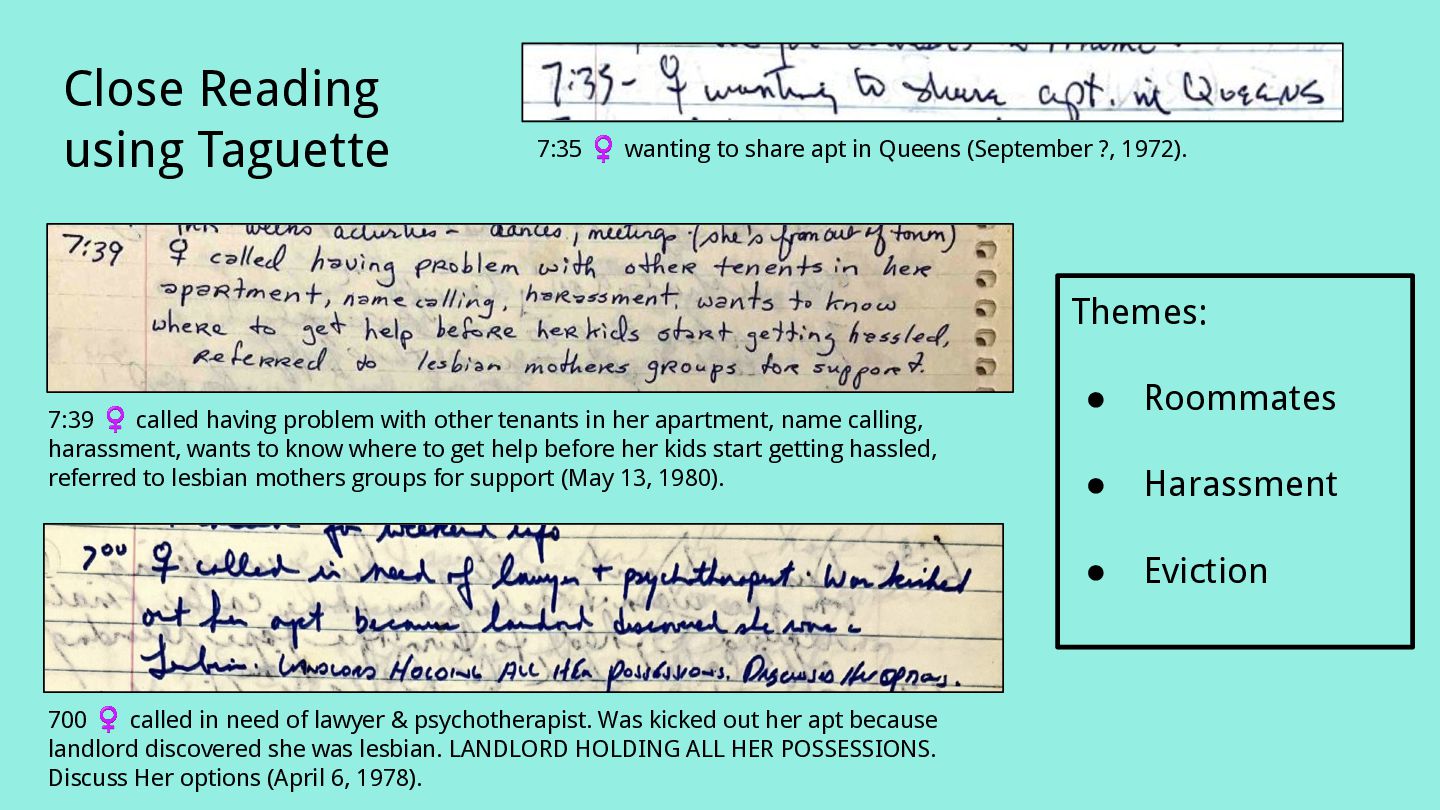 Close Reading
using Taguette
7:35 - ♀ wanting to share apt. in Queens
7:35 ♀ wanting to share apt in Queens (September ?, 1972).
this weeks activities - dances, meetings (she's from out of town)
7:39 ♀ called having problem with other tenents in her
apartment, name calling, harassment, wants to know
where to get help before her kids start getting hassled,
Referred to lesbian mothers groups for support.
7:39 ♀ called having problem with other tenants in her apartment, name calling,
harassment, wants to know where to get help before her kids start getting hassled,
referred to lesbian mothers groups for support (May 13, 1980).
for weekend info
7⁰⁰ ♀ called in need of lawyer + psychotherapist. Was kicked
out her apt because landlord discovered she was a
Lesbian. LANDLORD HOLDING ALL HER POSSESSIONS. Discussed Her options.
700 ♀ called in need of lawyer & psychotherapist. Was kicked out her apt because
landlord discovered she was lesbian. LANDLORD HOLDING ALL HER POSSESSIONS.
Discuss Her options (April 6, 1978).
Themes:
● Roommates
● Harassment
● Eviction